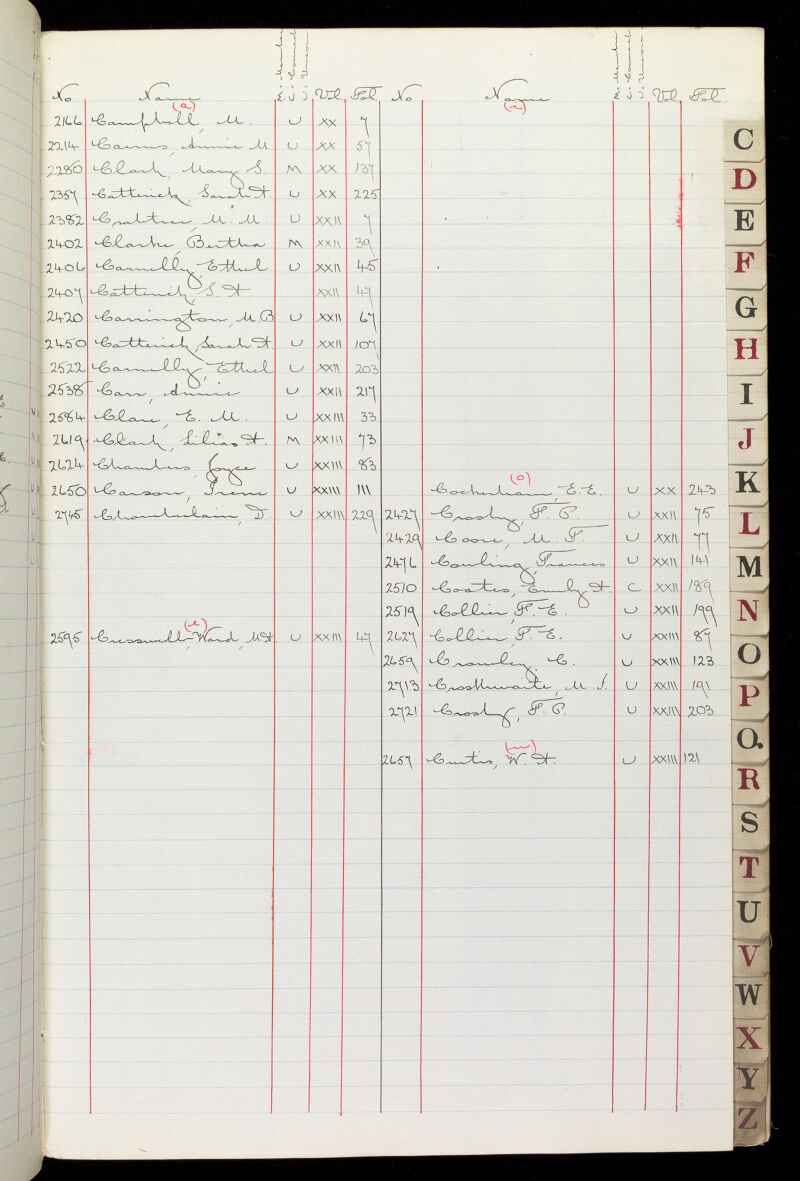 M. Member
C. Council
U. Union
No Name Vol Fol
(a)
2166 Campbell, M. U XX 7
2214 Cairns, Annie M U XX 57
2280 Clark, Mary S. M XX 137
2357 Catterick, Sarah A. U XX 225
2382 Crabtree, M. M. U XXII 7
2402 Clarke, Bertha M XXII 39
2406 Carnelly, Ethel U XXII 45
2407 Catterick, S. A XXII 47
2420 Carrington, M. B U XXII 67
2450 Catterick, Sarah A. U XXII 107
2522 Carnelly, Ethel U XXII 203
2538 Carr, Annie U XXII 217
2584 Clare, E. M. U XXIII 33
2619 Clark, Lilias A. M XXIII 73
2624 Chambers, Joyce U XXIII 83
2650 Carson, Irene U XXIII 111
2745 Chamberlain, D U XXIII 229
(e)
2595 Cresswell-Ward, M.A. U XXIII 47
M. Member
C. Council
U. Union
No Name Vol Fol.
(i)
(o)
Cockerham, E. E. U XX 243
2427 Crosby, F. P. U XXII 75
2429 Coore, M. F. U XXII 77
2476 Cowling, Frances U XXII 141
2510 Coates, Emily A. C XXII 189
2519 Collier, F. E. U XXII 199
2627 Collier, F. E. U XXIII 87
2659 Crowley, C. U XXIII 123
2713 Crosthwaite, M. J. U XXIII 191
2721 Crosby, F. P. U XXIII 203
(u)
2657 Curtis, W. A. U XXIII 121
C
D
E
F
G
H
I
J
K
L
M
N
O
P
Q.
R
S
T
U
V
W
X
Y
Z